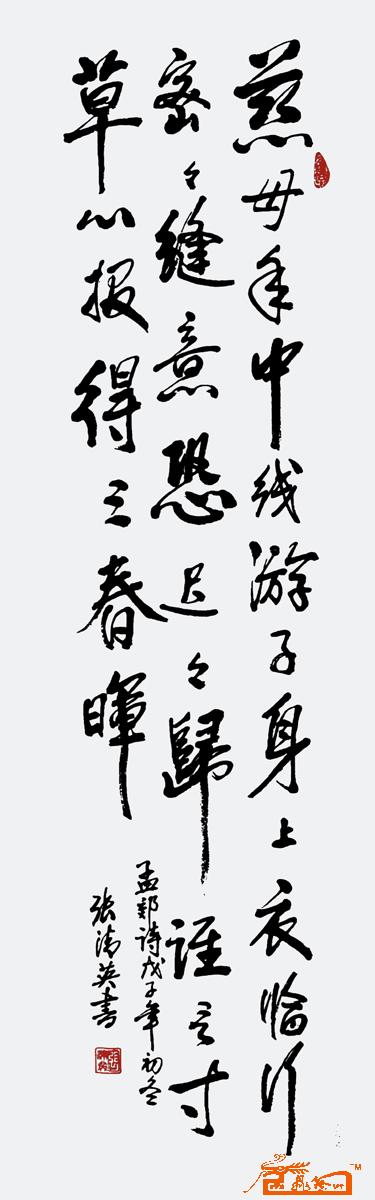 慈母手中线游子身上衣临行
密々縫意恐迟々歸谁言寸
草心报得三春暉
孟郊诗戊子年初冬
张清英書